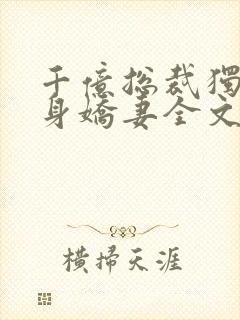 千億總裁獨
身嬌妻全文
橫掃天涯